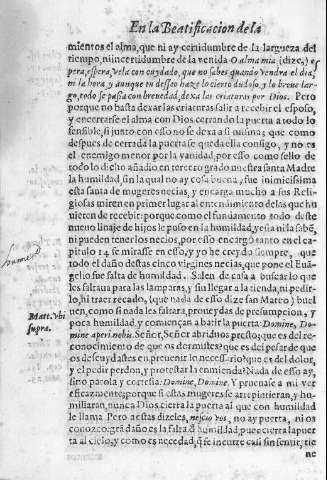 En la Beatificacion de la
mientos el alma, que ni ay certidumbre de la largueza del
tiempo, ni incertidumbre de la venida O alma mia (dize,) es
pera, espera, vela con cuydado, que no sabes quando vendra el dia,
ni la hora, y aunque en desseo haze lo cierto dudoso, y lo breve lar-
go, todo se passa con brevedad, dexa las criaturas por Dios. Pero
porque no basta dexar las criaturas salir a recebir el esposo,
y encerrarse el alma con Dios cerrando la puerta a todo lo
sensible, si junto con esso no se dexa a si misma; que como
despues de cerrada la puerta se queda ella consigo, y no es
el enemigo menor por la vanidad, por esso como sello de
todo lo dicho añadio en tercero grado nuestra santa Madre
la humildad, sin la qual no ay cosa buena, fue inimicissima
esta santa de mugeres necias, y encarga mucho a sus Reli-
giosas miren en primer lugar al entendimiento de las que hu
uieren de recebir: porque como el fundamento todo deste
nuevo linaje de hijos le puso en la humildad, y essa ni la saben,
ni pueden tener los necios, por esso encargò tanto en el ca-
pitulo 14 se mirasse en esso, y yo he creydo siempre, que
todo el daño destas cinco virgines necias, que pone el Euã-
gelio fue falta de humildad. Salen de casa a buscar lo que
les faltaua para las lamparas, y sin llegar a la tienda, ni pedir-
lo, ni traer recado, (que nada de esso dize san Mateo) buel
uen, como si nada les faltara, proueydas de presumpcion, y
poca humildad, y comiençan a batir la puerta: Domine, Do-
mine aperi nobis. Señor, Señor abridnos presto; que es del re-
conocimiento de que os dormistes? que es del pesar de que
os descuydastes en preuenir lo necessario? que es del dolor,
y el pedir perdon, y protestar la enmienda? Nada de esso ay,
sino parola y cortesia: Domine, Domine. Y prueuase a mi ver
eficazmente; porque si estas mugeres se arrepintieran, y hu-
millaran, nunca Dios cierra la puerta al que con humildad
le llama Pero a estas dizeles, nescio vos, no ay puerta, ni os
conozco: grã daño es la falta de humildad, pues cierra la puer
ta al cielo, y como es necedad, q̃ se incurre casi sin sentir, tie
ne
Matt. vbi
supra.